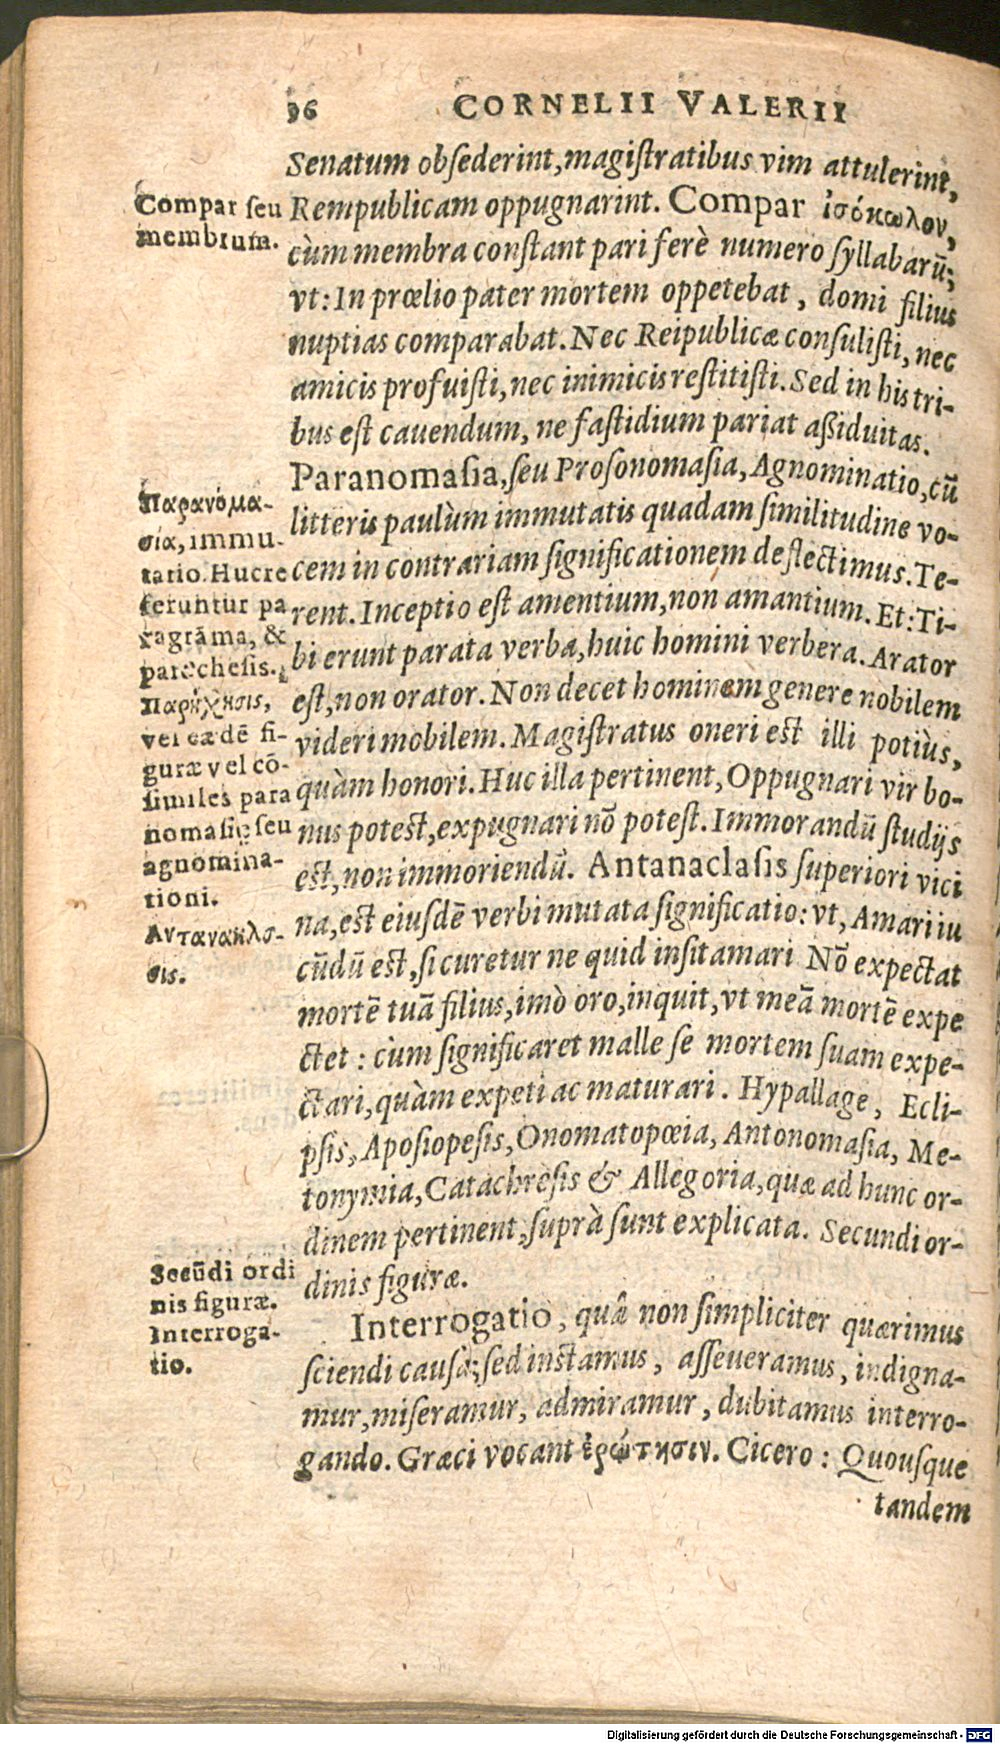 96 CORNELII VALERII
Senatum obſederint, magiſtratibus vim attulerint,
Rempublicam oppugnarint. Compar ἰσόκωλον,
cùm membra conſtant pari ferè numero ſyllabarū;
vt: In prœlio pater mortem oppetebat, domi filius
nuptias comparabat. Nec Reipublicæ conſuliſti, nec
amicis profuiſti, nec inimicis reſtitiſti. Sed in his tri-
bus eſt cauendum, ne faſtidium pariat aßiduitas.
Paranomaſia, ſeu Proſonomaſia, Agnominatio, cū
litteris paulùm immutatis quadam ſimilitudine vo-
cem in contrariam ſignificationem deflectimus. Te-
rent. Inceptio eſt amentium, non amantium. Et: Ti-
bi erunt parata verba, huic homini verbera. Arator
eſt, non orator. Non decet hominem genere nobilem
videri mobilem. Magiſtratus oneri eſt illi potiùs,
quàm honori. Huc illa pertinent, Oppugnari vir bo-
nus poteſt, expugnari nō poteſt. Immorandū ſtudijs
eſt, non immoriendū. Antanaclaſis ſuperiori vici
na, eſt eiuſdē verbi mutata ſignificatio: vt, Amari iu
cūdū eſt, ſi curetur ne quid inſit amari Nō expectat
mortē tuā filius, imò oro, inquit, vt meā mortē expe
ctet: cùm ſignificaret malle ſe mortem ſuam expe-
ctari, quàm expeti ac maturari. Hypallage, Ecli-
pſis, Apoſiopeſis, Onomatopœia, Antonomaſia, Me-
tonymia, Catachreſis & Allegoria, quæ ad hunc or-
dinem pertinent, ſuprà ſunt explicata. Secundi or-
dinis figuræ.
Interrogatio, quâ non ſimpliciter quærimus
ſciendi causâ; ſed inſtamus, aſſeueramus, indigna-
mur, miſeramur, admiramur, dubitamus interro-
gando. Græci vocant ἐρώτησιν. Cicero: Quouſque
tandem
Compar ſeu
membrum.
Παρανομα-
σία, immu-
tatio. Huc re
feruntur pa
ragrāma, &
parechesis.
Παρήχησις,
vel eædē fi-
guræ vel cō-
ſimiles para
nomaſię ſeu
agnomina-
tioni.
Αντανακλα-
σις.
Secūdi ordi
nis figuræ.
Interroga-
tio.
Digitalisierung gefördert durch die Deutsche Forschungsgemeinschaft - DFG